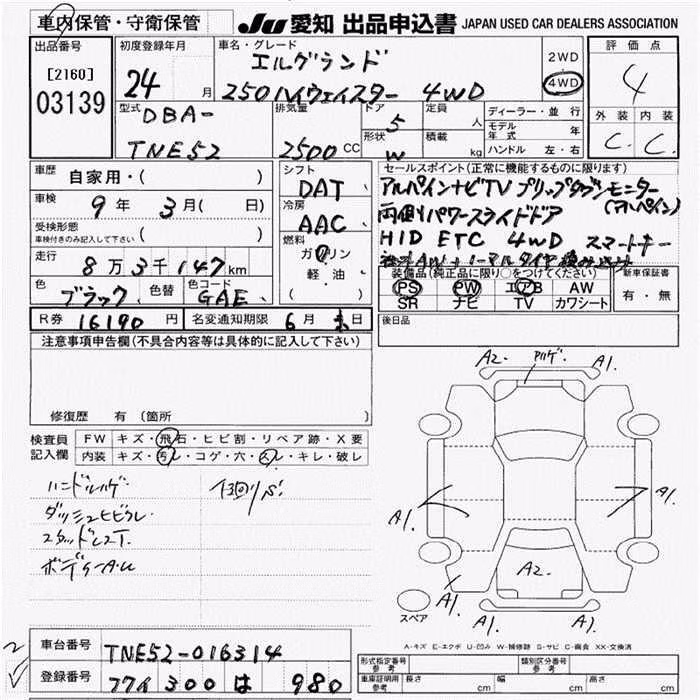 車内保管・守衛保管
JU 愛知 出品申込書 JAPAN USED CAR DEALERS ASSOCIATION
出品番号
[2160]
03139
初度登録年月
24 月
車名・グレード
エルグランド
250 ハイウェイスター 4WD
2WD
4WD
評価点
4
外装 内装
C. C.
型式
DBA-
TNE52
排気量
2500 CC
ドア
5
形状
W
定員
人
積載
kg
ディーラー・並行
モデル年式 年
ハンドル 左・右
車歴
自家用・( )
車検
9年 3月( 日)
受検形態
車検付きのみ記入して下さい ( )
走行
8万3千147km
色
ブラック
色替
色コード
GAE
シフト
DAT
冷房
AAC
燃料
ガソリン
・軽油・
( )
セールスポイント(正常に機能するものに限ります)
アルパインナビTV フリップダウンモニター
(アルパイン)
両側パワースライドドア
HID ETC 4WD スマートキー
装備品(純正品に限り○をつけてください)
PS PW エアB AW
SR ナビ TV カワシート
新車保証書
有・無
R券 16190円
名変通知期限 6月末日
後日品
注意事項申告欄(不具合内容等は具体的に記入して下さい)
修復歴 有 〔箇所 〕
検査員
記入欄
FW キズ・飛石・ヒビ割・リペア跡・X要
内装 キズ・汚レ・コゲ・穴・スレ・キレ・破レ
ハンドルハゲ
ダッシュヒビワレ
ボデーA.U
A2. A1.
A1. A1.
A2.
A1. A1.
スペア
A-キズ E-エクボ U-凹み W-補修跡 S-サビ C-腐食 XX-交換済
車台番号
TNE52-016314
登録番号
300 は 980
形式指定番号
参考
類別区分番号
参考
車庫証明用
参考
長さ cm
幅 cm
高さ cm